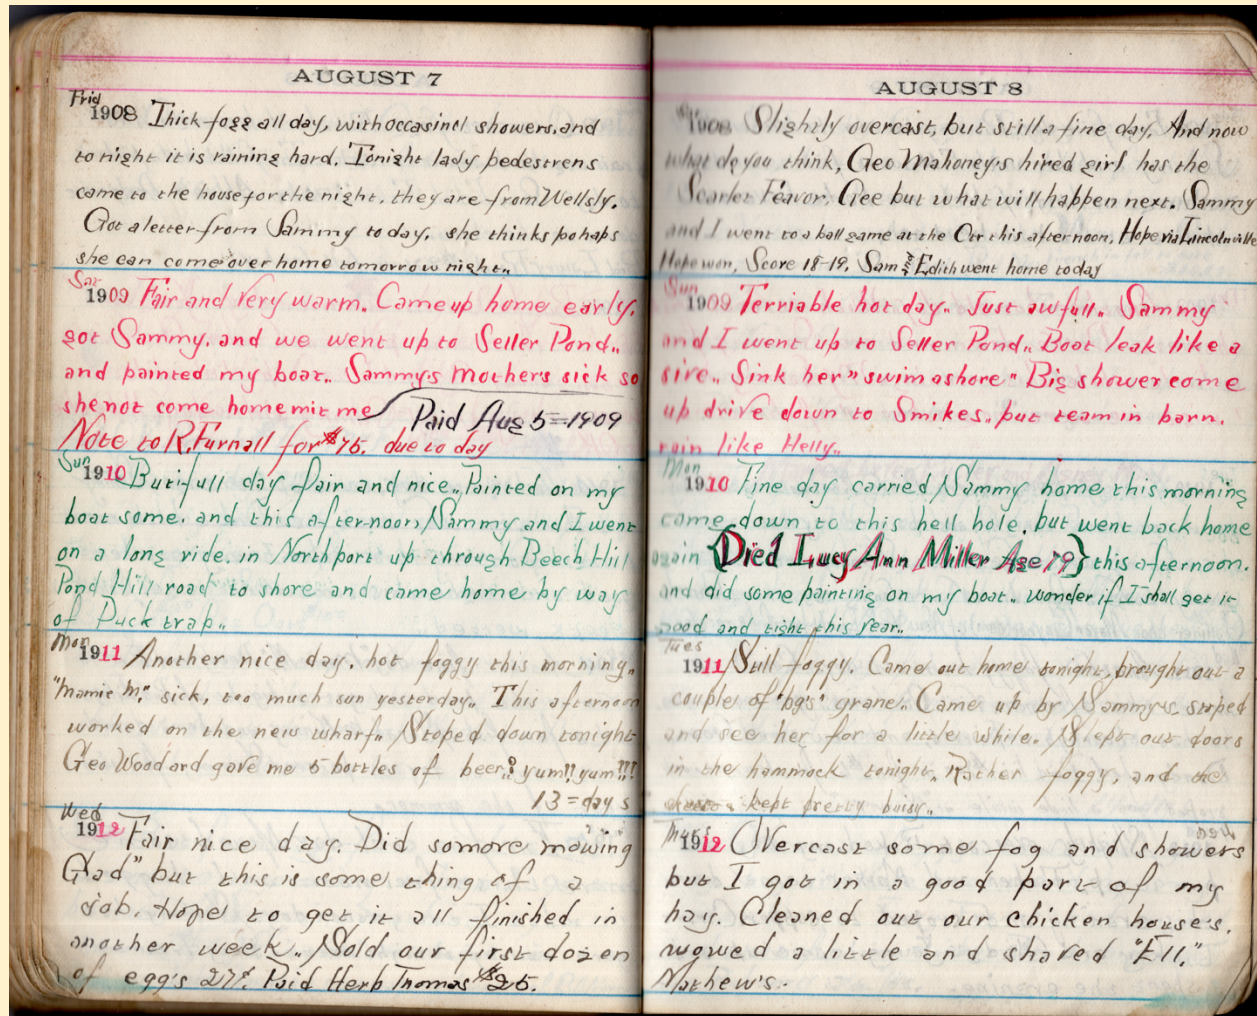 AUGUST 7
Frid
1908 Thick fogg all day, with occasinol showers, and
to night it is raining hard. Tonight lady pedestrens
came to the house for the night, they are from Wellsly.
Got a letter from Sammy to day. she thinks pohaps
she can come over home tomorrow night..
Sat
1909 Fair and very warm. Came up home early.
got Sammy. and we went up to Seller Pond..
and painted my boat.. Sammys mothers sick so
she not come home mit me Paid Aug 5=1909
Note to R. Furnall for $75. due to day
Sun
1910 Butifull day fair and nice.. Painted on my
boat some. and this afternoon, Sammy and I went
on a long ride. in Northport up through Beech Hill
Pond Hill road to shore and came home by way
of Duck trap..
Mon
1911 Another nice day. hot foggy this morning.
"Mamie M." sick, too much sun yesterday.. This afternoon
worked on the new wharf.. Stoped down tonight
Geo Woodard gave me 5 bottles of beer,? yum!! yum!!!
13=days
Wed
1912 Fair nice day. Did somore "mowing
Glad" but this is some thing of a
job. Hope to get it all finished in
another week.. Sold our first dozen
of egg's 27¢. Paid Herb Thomas $25.
AUGUST 8
1908 Slightly overcast, but still a fine day. And now
what do you think, Geo Mahoney's hired girl has the
Scarlet Feavor. Gee but what will happen next. Sammy
and I went to a ball game at the Ctr this afternoon, Hope via Lincolnville
Hope won, Score 18-19. Sam and Edith went home to day
Sun
1909 Terriable hot day.. Just awfull.. Sammy
and I went up to Seller Pond.. Boat leak like a
sive.. Sink her" swim ashore" Big shower come
up drive down to Smikes. put team in barn.
rain like Helly..
Mon
1910 Fine day carried Sammy home this morning
came down to this hell hole. but went back home
again {Died Lucy Ann Miller Age 79} this afternoon.
and did some painting on my boat.. wonder if I shall get it
good and tight this year..
Tues
1911 Still foggy. Came out home tonight, brought out a
couple of "bg's" grane.. Came up by Sammy's. stoped
and see her for a little while. Slept out doors
in the hammock tonight.. Rather foggy, and the
kept pretty buisy..
Thurs
1912 Overcast some fog and showers
but I got in a good part of my
hay. Cleaned out our chicken house's.
mowed a little and shaved "Ell."
Mathew's..